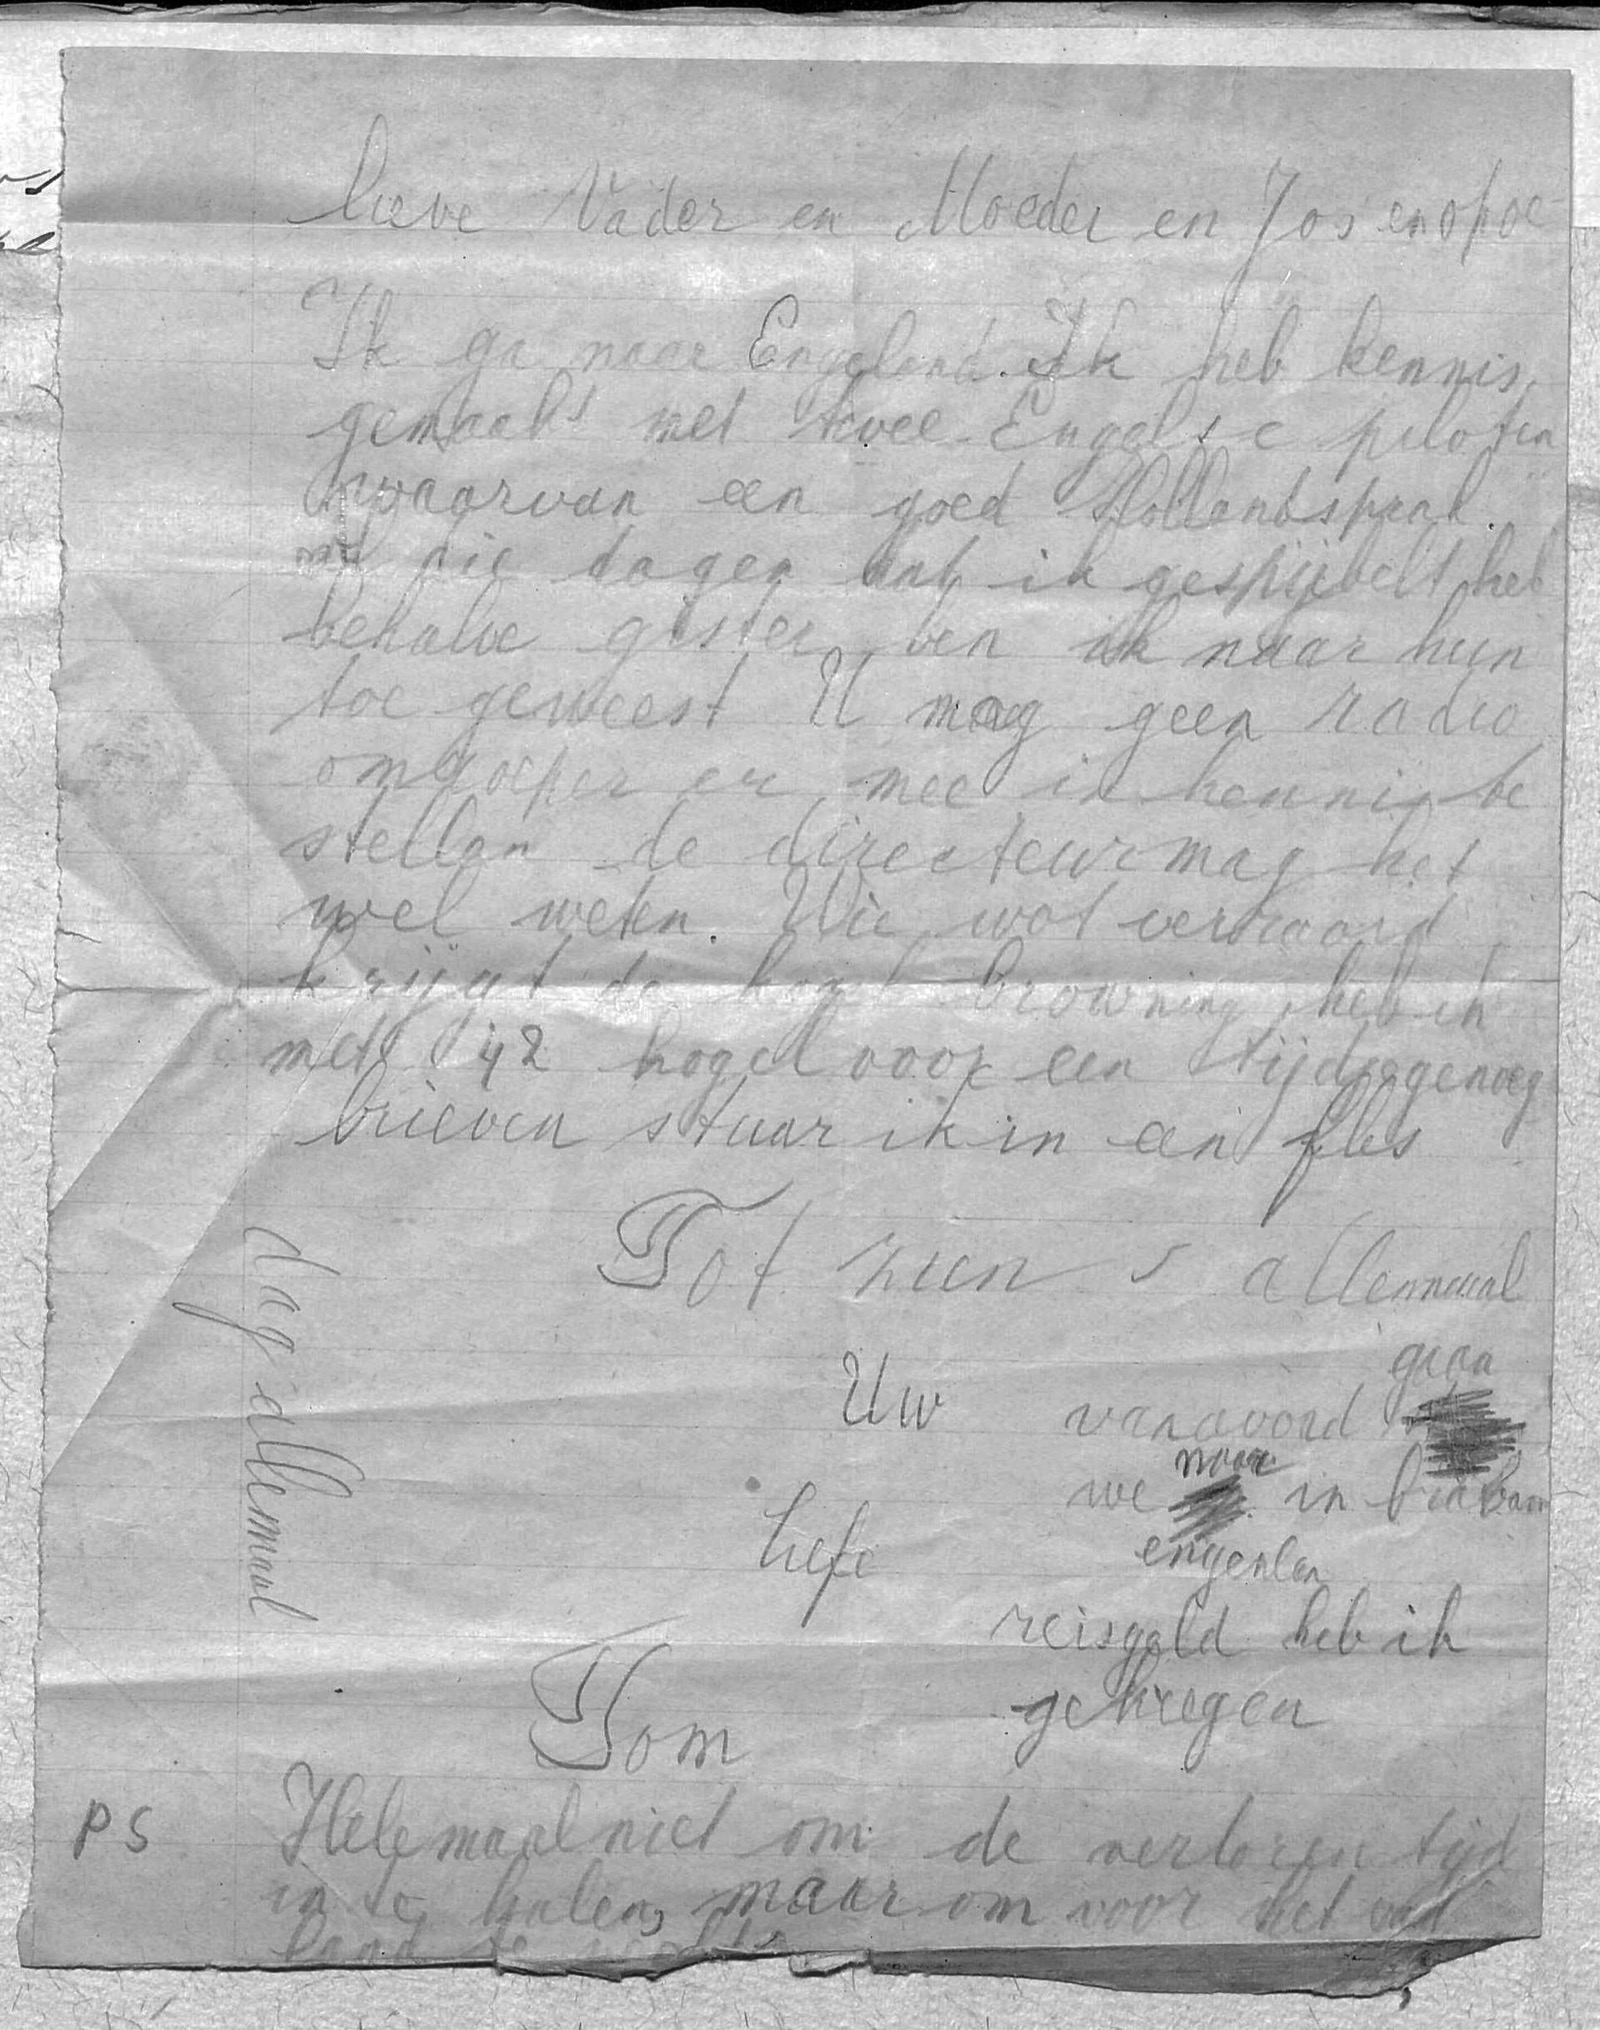 lieve Vader en Moeder en Jos en opoe
Ik ga naar Engeland. Ik heb kennis
gemaakt met twee Engelse piloten
waarvan een goed Hollandspraat.
die dagen dat ik gespijbelt heb
behalve gister ben ik naar hun
toe geweest U mag geen radio
omroeper er mee in kennis te
stellen de directeur mag het
wel weten. Wie wat verraard
krijgt de kogel browning heb ik
met 42 kogel voor een tijdje genoeg
brieven stuur ik in een fles
Tot ziens allemaal
Uw
liefe
Tom
vanavond gaan
we naar in braban
engenlan
reisgeld heb ik
gekregen
dag allemaal
PS Helemaal niet om de verloren tijd
in te halen, maar om voor het vad
land te